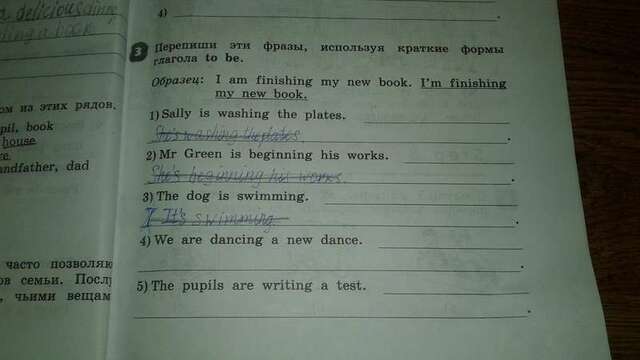 a delicious dinner
ding a book
4)
3 Перепиши эти фразы, используя краткие формы
глагола to be.
Образец: I am finishing my new book. I'm finishing
my new book.
ом из этих рядов.
pil, book
house
ce.
andfather, dad
1) Sally is washing the plates.
She's washing the plates.
2) Mr Green is beginning his works.
She's beginning his works.
3) The dog is swimming.
I It's swimming.
4) We are dancing a new dance.
5) The pupils are writing a test.
часто позволяю
ов семьи. Послу
, чьими вещам